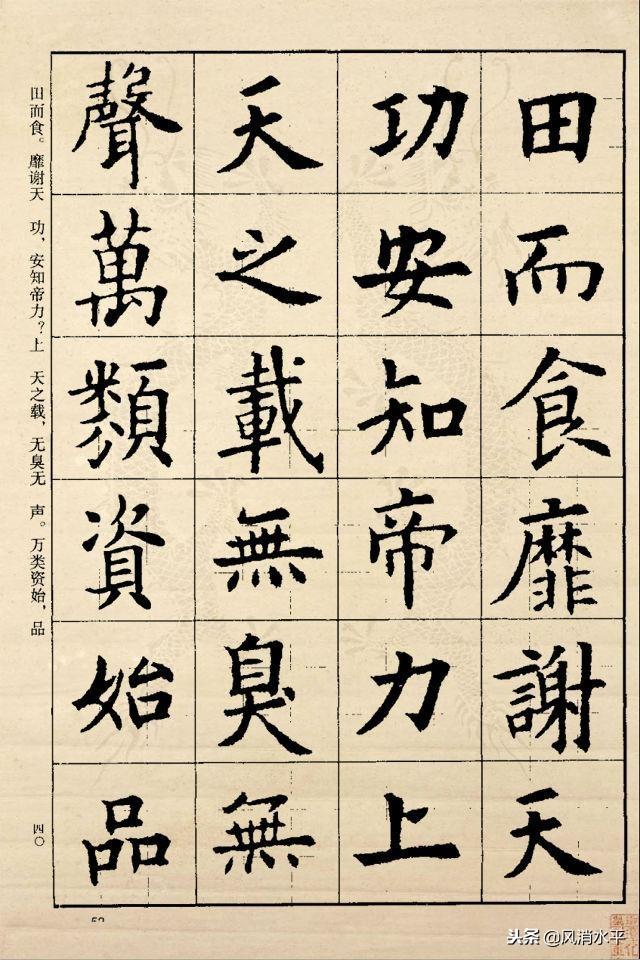 田而食靡謝天
功安知帝力上
天之載無臭無
聲萬類資始品
田而食。靡谢天　功，安知帝力？上　天之载，无臭无　声。万类资始，品
四〇
52
头条 @风消水平